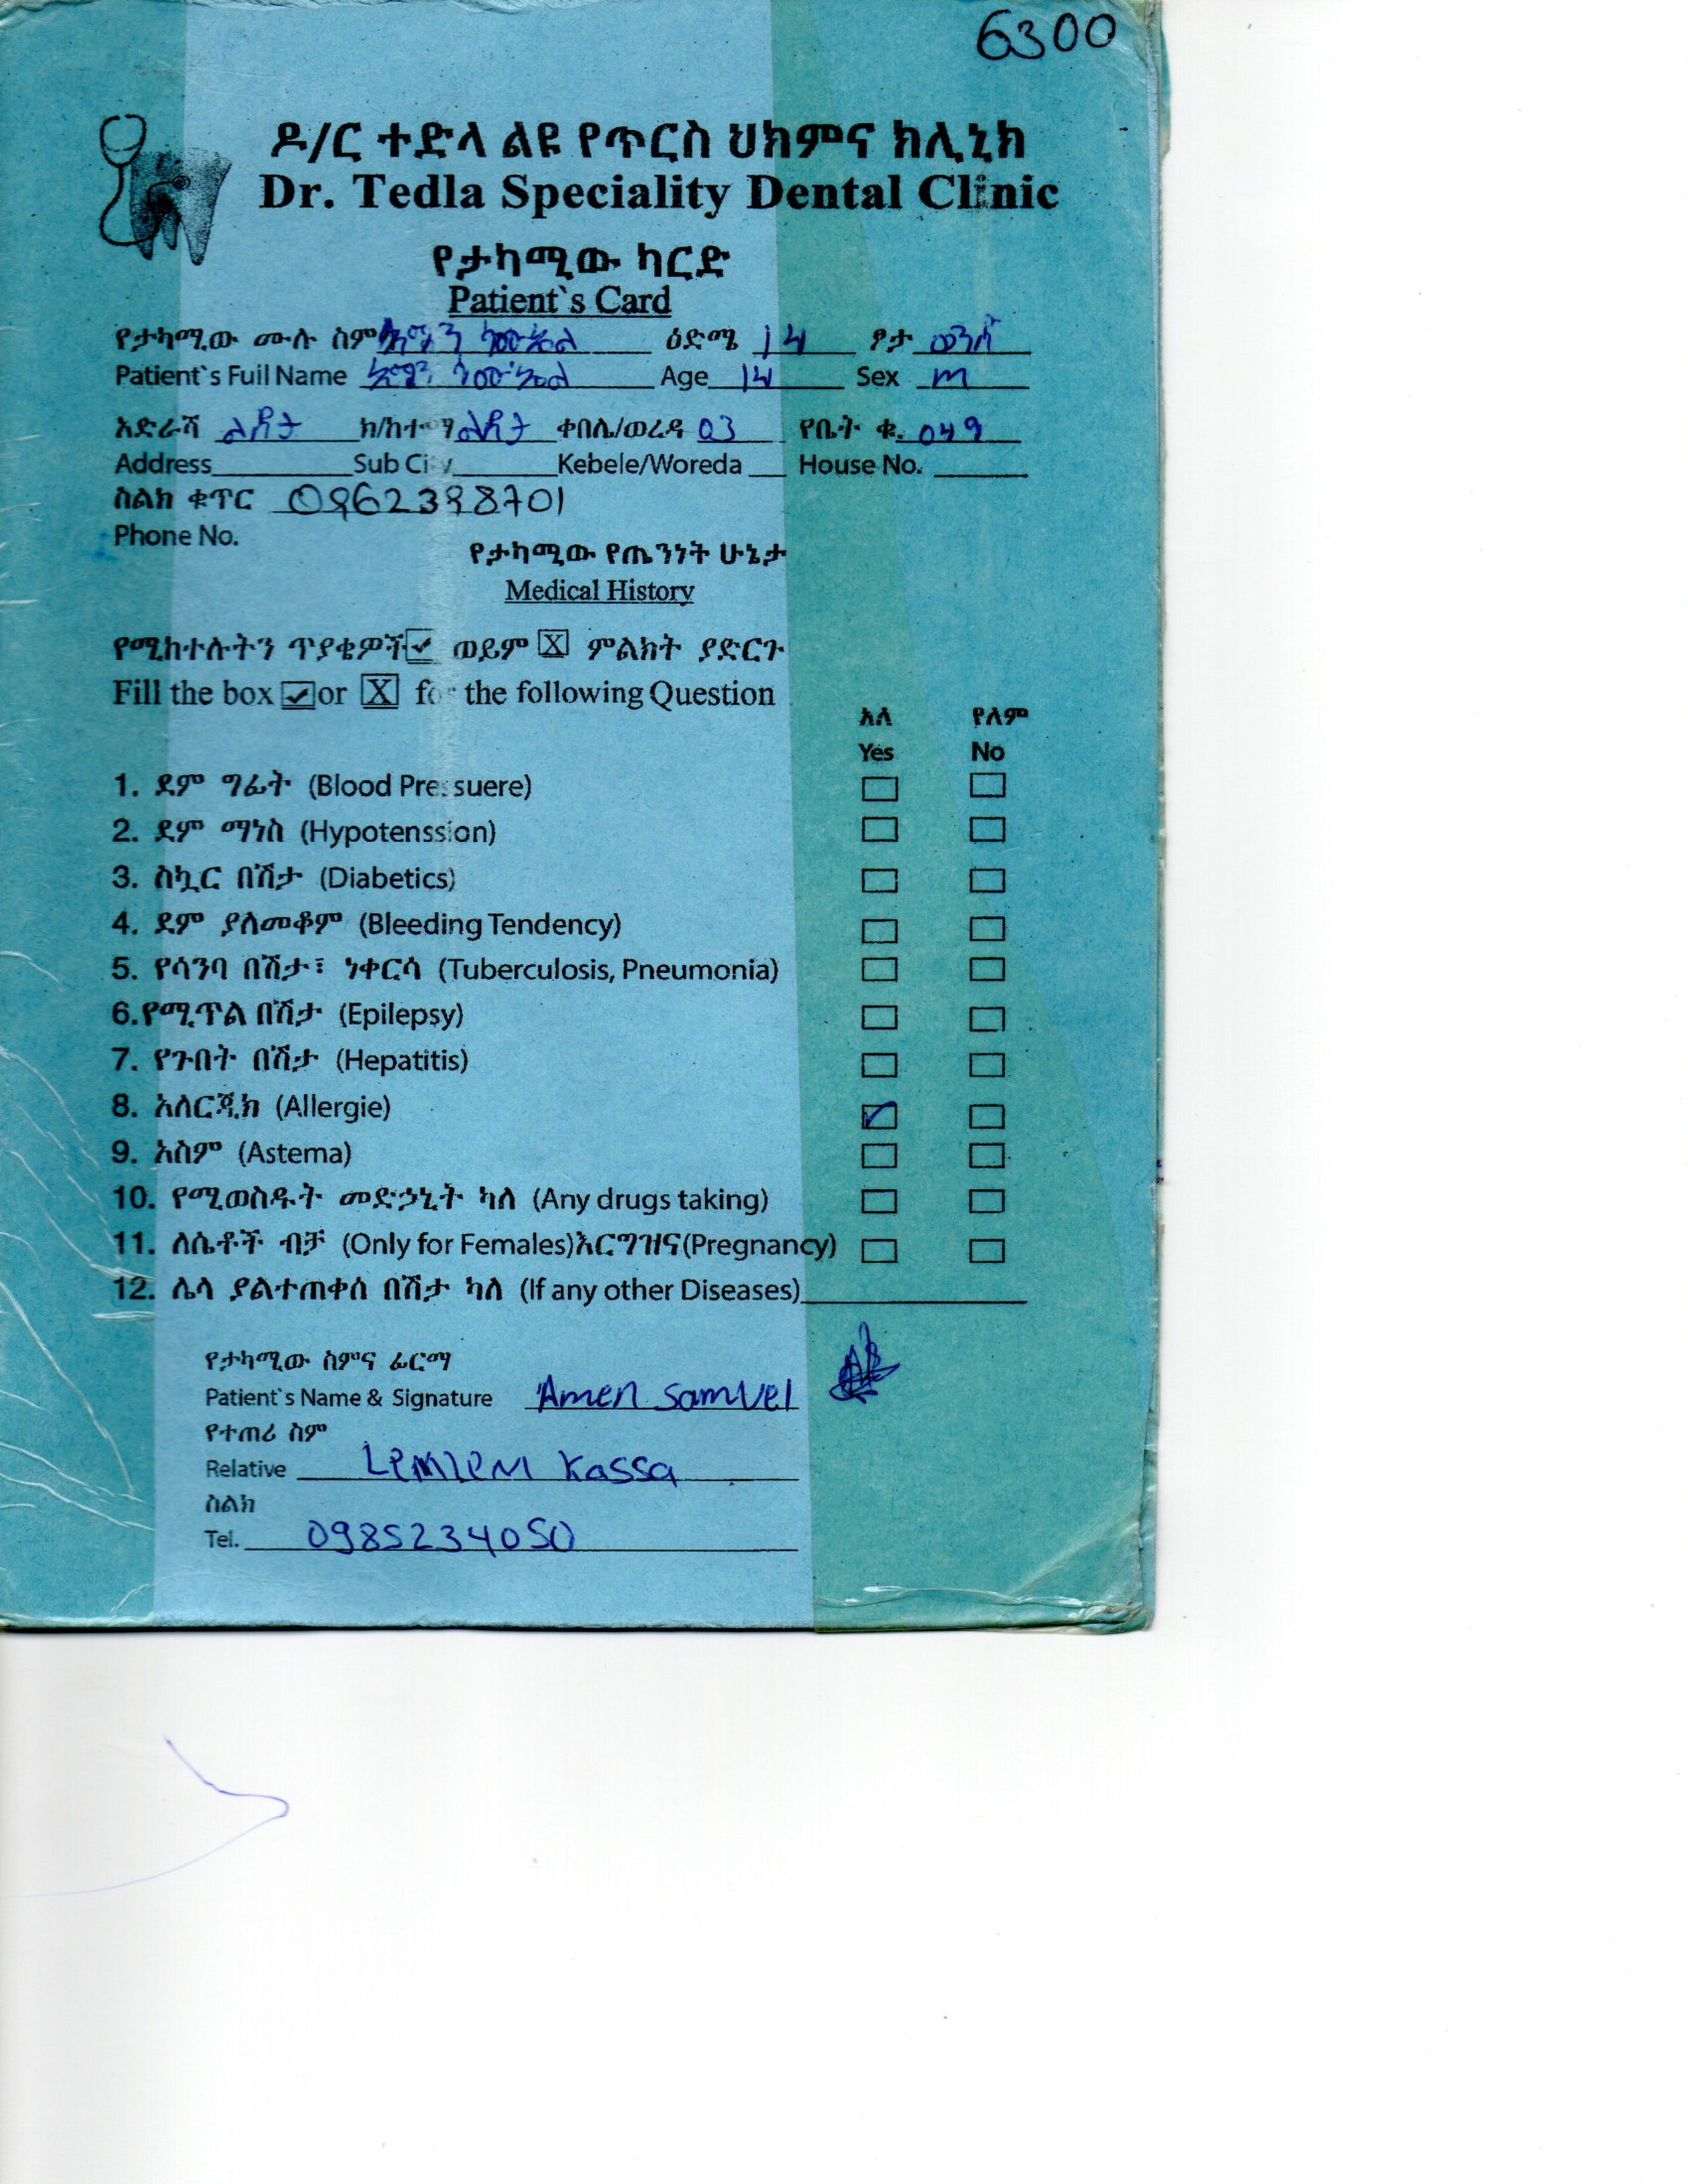 6300
ዶ/ር ተድላ ልዩ የጥርስ ህክምና ክሊኒክ
Dr. Tedla Speciality Dental Clinic
የታካሚው ካርድ
Patient`s Card
የታካሚው ሙሉ ስም አሜን ሳሙኤል ዕድሜ 14 ፆታ ወንድ
Patient`s Fuil Name አሜን ሳሙኤል Age 14 Sex m
አድራሻ ልደታ ክ/ከተማ ልደታ ቀበሌ/ወረዳ 03 የቤት ቁ. 049
Address Sub City Kebele/Woreda House No.
ስልክ ቁጥር
Phone No.
የታካሚው የጤንነት ሁኔታ
Medical History
የሚከተሉትን ጥያቄዎች ✓ ወይም X ምልክት ያድርጉ
Fill the box ✓ or X for the following Question
አለ የለም
Yes No
1. ደም ግፊት (Blood Pressuere)
2. ደም ማነስ (Hypotenssion)
3. ስኳር በሽታ (Diabetics)
4. ደም ያለመቆም (Bleeding Tendency)
5. የሳንባ በሽታ፣ ነቀርሳ (Tuberculosis, Pneumonia)
6.የሚጥል በሽታ (Epilepsy)
7. የጉበት በሽታ (Hepatitis)
8. አለርጂክ (Allergie) ✓
9. አስም (Astema)
10. የሚወስዱት መድኃኒት ካለ (Any drugs taking)
11. ለሴቶች ብቻ (Only for Females)እርግዝና(Pregnancy)
12. ሌላ ያልተጠቀሰ በሽታ ካለ (If any other Diseases)
የታካሚው ስምና ፊርማ
Patient`s Name & Signature Amen Samuel
የተጠሪ ስም
Relative Lemlem Kassa
ስልክ
Tel. 0985234050